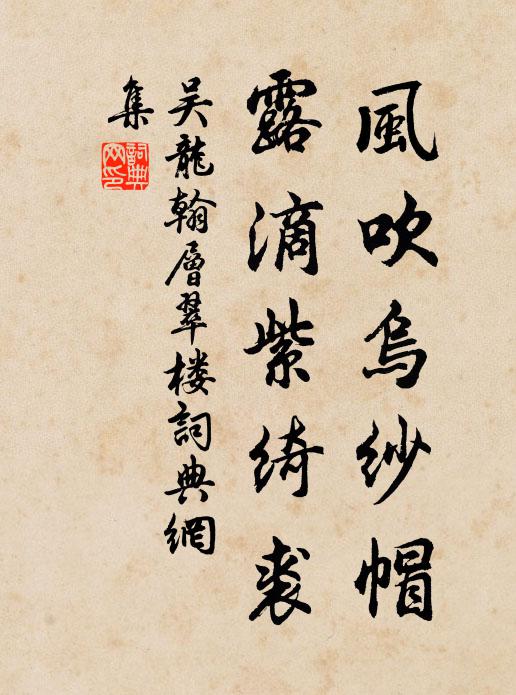 風吹烏紗帽
露滴紫綺裘
吳龍翰層翠樓詞典網
集
詞典
網印